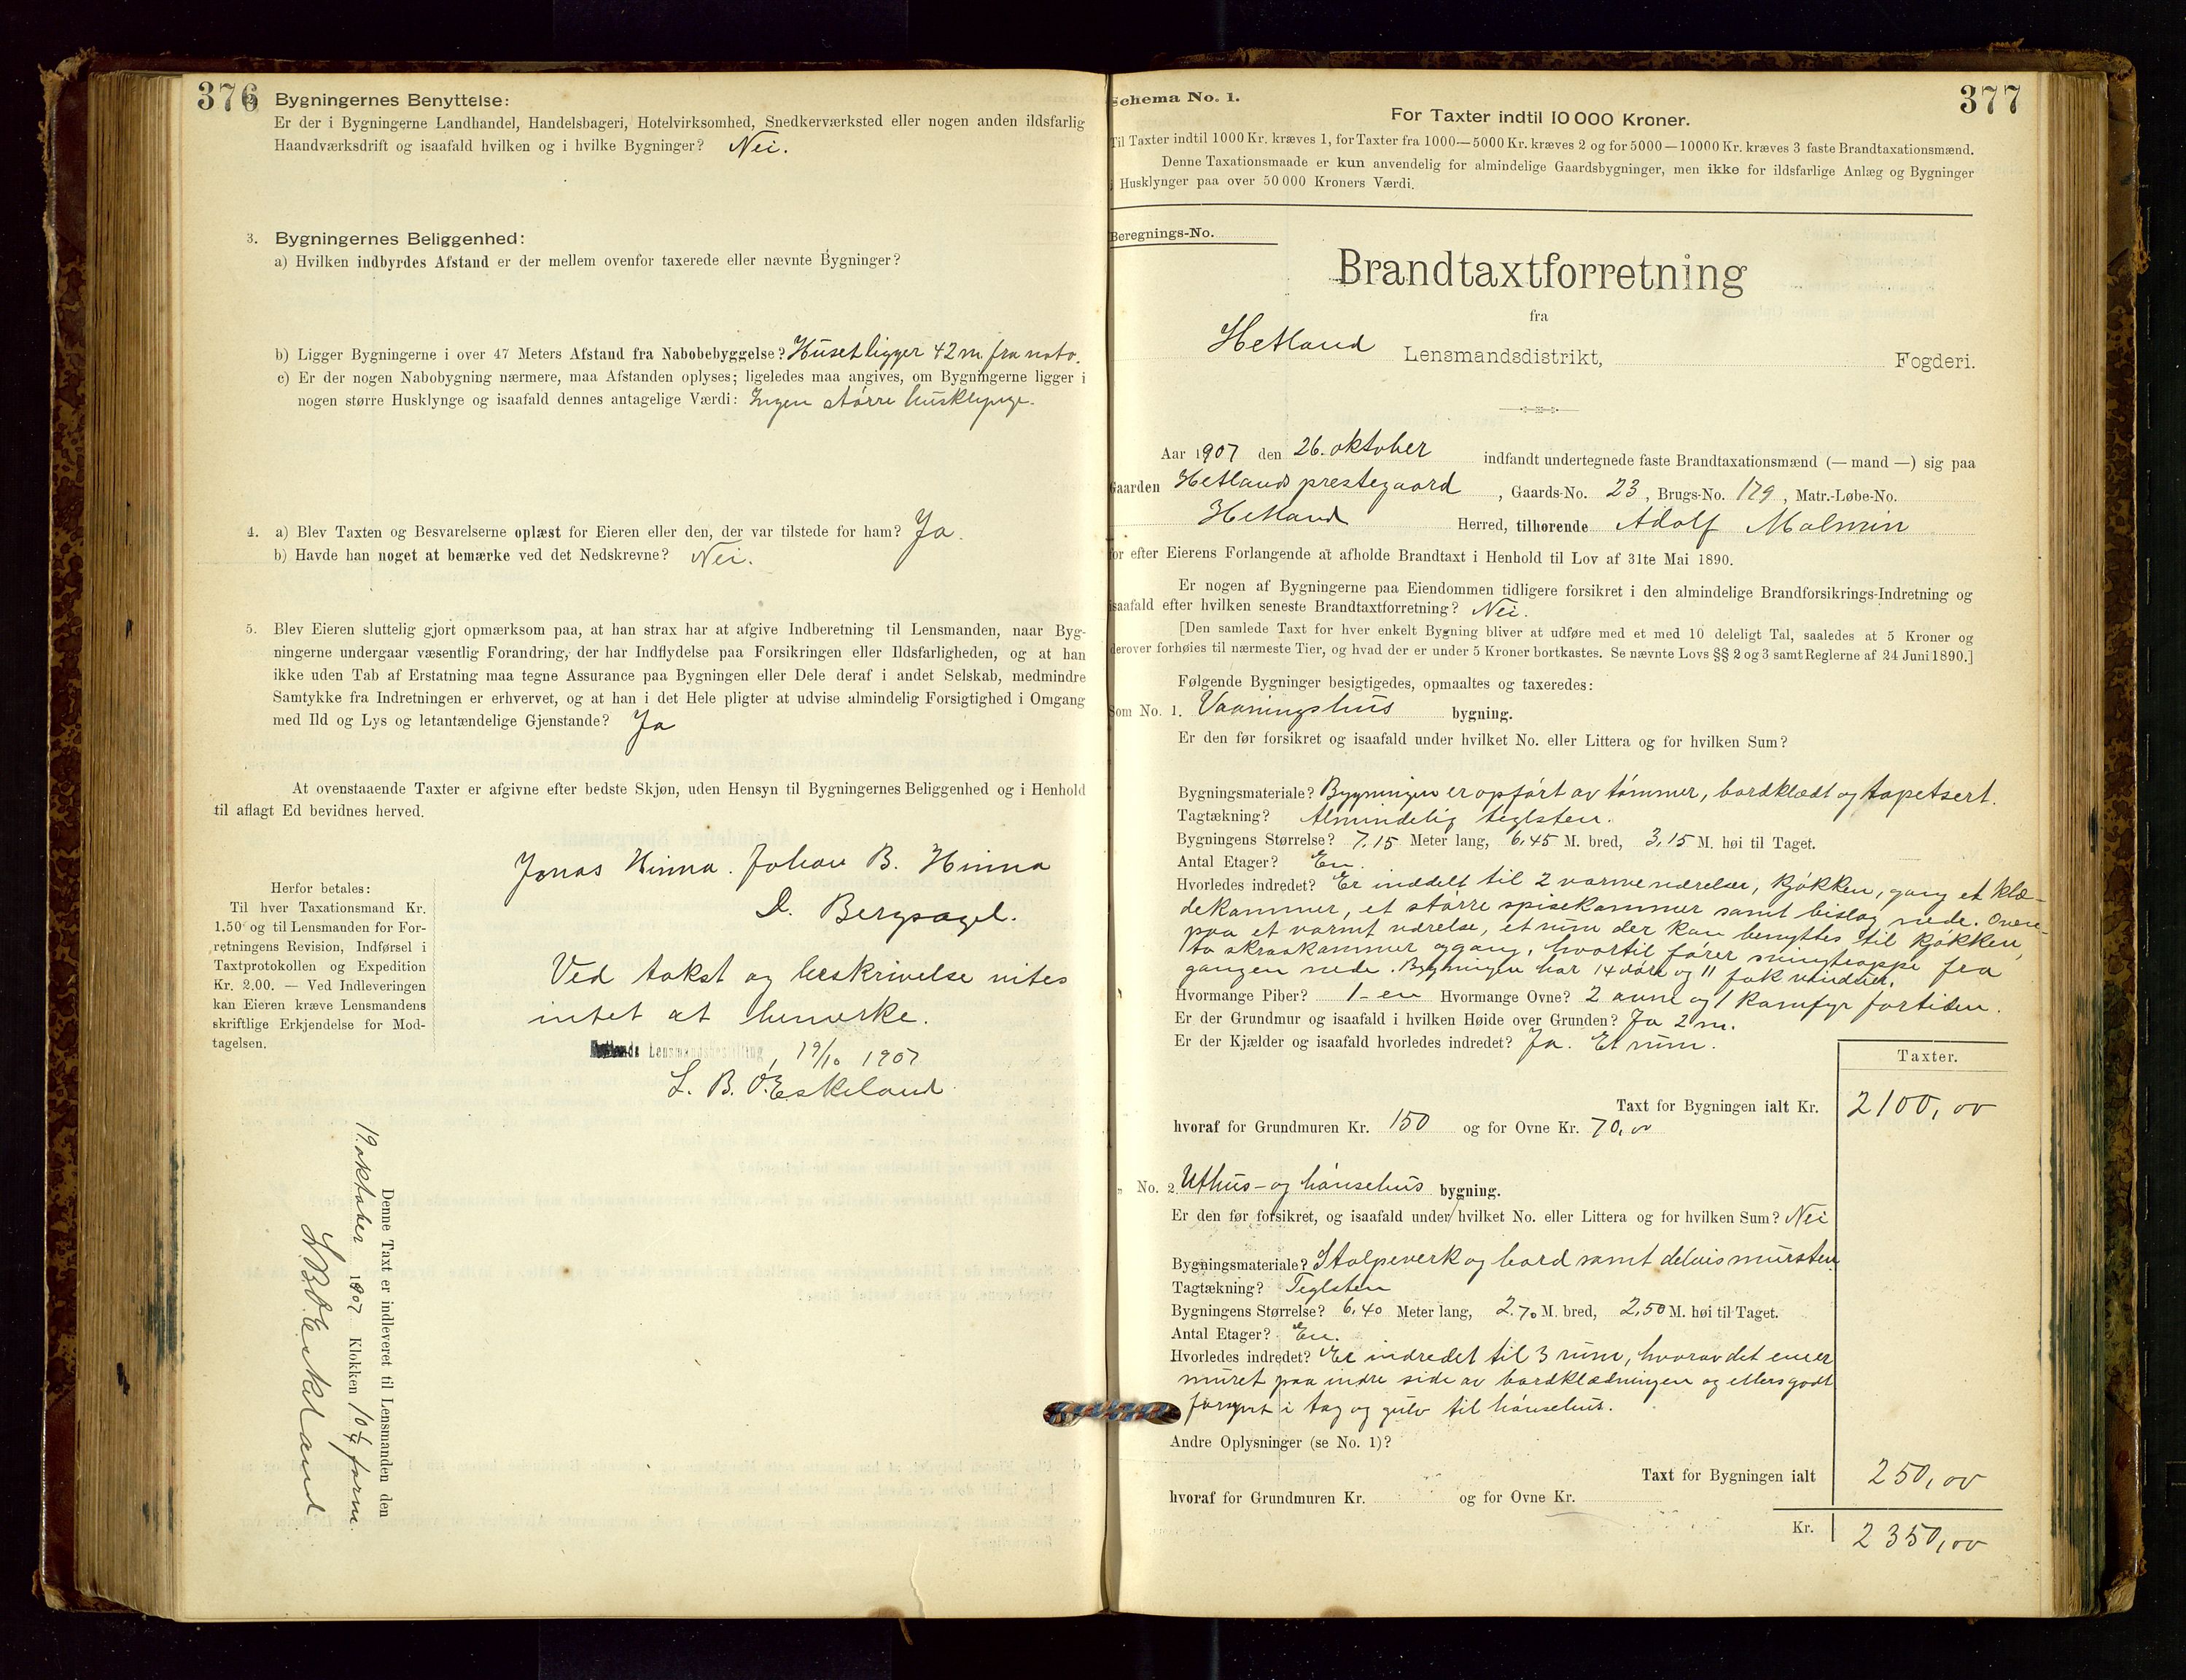 376
Bygningernes Benyttelse:
Er der i Bygningerne Landhandel, Handelsbageri, Hotelvirksomhed, Snedkerværksted eller nogen anden ildsfarlig
Haandværksdrift og isaafald hvilken og i hvilke Bygninger? Nei.
3. Bygningernes Beliggenhed:
a) Hvilken indbyrdes Afstand er der mellem ovenfor taxerede eller nævnte Bygninger?
b) Ligger Bygningerne i over 47 Meters Afstand fra Nabobebyggelse? Huset ligger 42 m. fra nabo.
c) Er der nogen Nabobygning nærmere, maa Afstanden oplyses; ligeledes maa angives, om Bygningerne ligger i
nogen større Husklynge og isaafald dennes antagelige Værdi: Ingen større husklynge.
4. a) Blev Taxten og Besvarelserne oplæst for Eieren eller den, der var tilstede for ham? Ja.
b) Havde han noget at bemærke ved det Nedskrevne? Nei.
5. Blev Eieren sluttelig gjort opmærksom paa, at han strax har at afgive Indberetning til Lensmanden, naar Byg-
ningerne undergaar væsentlig Forandring, der har Indflydelse paa Forsikringen eller Ildsfarligheden, og at han
ikke uden Tab af Erstatning maa tegne Assurance paa Bygningen eller Dele deraf i andet Selskab, medmindre
Samtykke fra Indretningen er erhvervet, og at han i det Hele pligter at udvise almindelig Forsigtighed i Omgang
med Ild og Lys og letantændelige Gjenstande? Ja
At ovenstaaende Taxter er afgivne efter bedste Skjøn, uden Hensyn til Bygningernes Beliggenhed og i Henhold
til aflagt Ed bevidnes herved.
Jonas Hinna. Johan B. Hinna
D. Bergsagel.
Herfor betales:
Til hver Taxationsmand Kr.
1.50 og til Lensmanden for For-
retningens Revision, Indførsel i
Taxtprotokollen og Expedition
Kr. 2.00. — Ved Indleveringen
kan Eieren kræve Lensmandens
skriftlige Erkjendelse for Mod-
tagelsen.
Ved takst og beskrivelse vites
intet at bemerke.
Lensmandsbestilling, 19/10 1907
L. B. O. Eskeland
Denne Taxt er indleveret til Lensmanden den
19. oktober 1907 Klokken 10 1/4 form.
L. B. O. Eskeland
Schema No. 1.
377
For Taxter indtil 10 000 Kroner.
Til Taxter indtil 1000 Kr. kræves 1, for Taxter fra 1000—5000 Kr. kræves 2 og for 5000—10000 Kr. kræves 3 faste Brandtaxationsmænd.
Denne Taxationsmaade er kun anvendelig for almindelige Gaardsbygninger, men ikke for ildsfarlige Anlæg og Bygninger
i Husklynger paa over 50 000 Kroners Værdi.
Beregnings-No.
Brandtaxtforretning
fra
Hetland Lensmandsdistrikt, Fogderi.
Aar 1907 den 26. oktober indfandt undertegnede faste Brandtaxationsmænd (— mand —) sig paa
Gaarden Hetlands prestegaard, Gaards-No. 23, Brugs-No. 179, Matr.-Løbe-No.
Hetland Herred, tilhørende Adolf Malmin
for efter Eierens Forlangende at afholde Brandtaxt i Henhold til Lov af 31te Mai 1890.
Er nogen af Bygningerne paa Eiendommen tidligere forsikret i den almindelige Brandforsikrings-Indretning og
isaafald efter hvilken seneste Brandtaxtforretning? Nei.
[Den samlede Taxt for hver enkelt Bygning bliver at udføre med et med 10 deleligt Tal, saaledes at 5 Kroner og
derover forhøies til nærmeste Tier, og hvad der er under 5 Kroner bortkastes. Se nævnte Lovs §§ 2 og 3 samt Reglerne af 24 Juni 1890.]
Følgende Bygninger besigtigedes, opmaaltes og taxeredes:
Som No. 1. Vaaningshus bygning.
Er den før forsikret og isaafald under hvilket No. eller Littera og for hvilken Sum?
Bygningsmateriale? Bygningen er opført av tømmer, bordklædt og tapetsert.
Tagtækning? Almindelig teglsten.
Bygningens Størrelse? 7,15 Meter lang, 6,45 M. bred, 3,15 M. høi til Taget.
Antal Etager? En.
Hvorledes indredet? Er inddelt til 2 varmeværelser, kjøkken, gang et klæ-
dekammer, et større spisekammer samt bislag nede. Oven-
paa et varmt værelse, et rum der kan benyttes til kjøkken,
to skraakammer og gang, hvortil fører svingtrappe fra
gangen nede. Bygningen har 14 døre og 11 fak vinduer.
Hvormange Piber? 1 - en Hvormange Ovne? 2 ovne og 1 komfyr fortiden.
Er der Grundmur og isaafald i hvilken Høide over Grunden? Ja 2 m.
Er der Kjælder og isaafald hvorledes indredet? Ja. Et rum.
Taxter.
Taxt for Bygningen ialt Kr. 2100,00
hvoraf for Grundmuren Kr. 150 og for Ovne Kr. 70,00
" No. 2. Uthus- og hønsehus bygning.
Er den før forsikret, og isaafald under hvilket No. eller Littera og for hvilken Sum? Nei
Bygningsmateriale? Stolpeverk og bord samt delvis mursten.
Tagtækning? Teglsten
Bygningens Størrelse? 6,40 Meter lang, 2.70 M. bred, 2,50 M. høi til Taget.
Antal Etager? En.
Hvorledes indredet? Er indredet til 3 rum, hvorav det ene er
muret paa indre side av bordklædningen og ellers godt
forsynt i tag og gulv til hønsehus.
Andre Oplysninger (se No. 1)?
Taxt for Bygningen ialt 250,00
hvoraf for Grundmuren Kr. og for Ovne Kr.
Kr. 2350,00